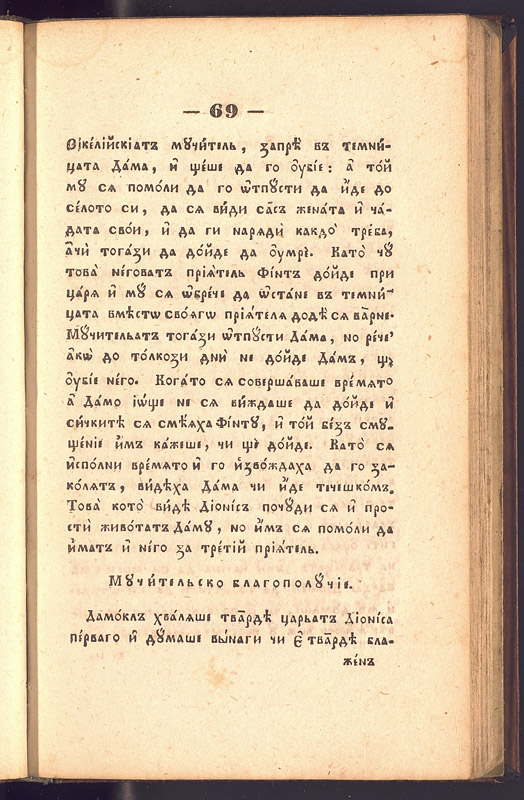 — 69 —
Ѳїкелі́йскїатъ мꙋчи́тель, запрѣ̀ въ темни́-
цата Да́ма, и҆ щѣ́ше да го ᲂу҆бїе: а҆ то́й
мꙋ сѧ помо́ли да го ѿпꙋсти да и҆́де до
се́лото си, да сѧ ви́ди са́съ жена́та и҆ ча́-
дата сво́и, и҆ да ги наряди̏ какдо̀ тре́ба,
а҆чѝ тога́зи да до́йде да ᲂу҆мрѐ. Като̀ чꙋ̀
това̀ не́говатъ прїѧ́тель Фі́нтъ до́йде при
ца́рѧ и҆ мꙋ сѧ ѡ҆брече да ѡ҆ста́не въ темни́-
цата вмѣ́стѡ своѧгѡ прїѧ́телѧ додѣ̀ сѧ ва́рне.
Мꙋчительатъ тога́зи ѿпꙋсти Да́ма, но речѐ
а҆́кѡ до то́лкози днѝ не до́йде Да́мъ, щѐ
ᲂу҆бїе него. Кога́то сѧ соверша́ваше вре́мѧто
а҆ Да́мо і҆ѡ́ще не сѧ ви́ждаше да до́йде и҆
си́чкитѣ сѧ смѣѧха Фі́нтꙋ, и҆ то́й бе́зъ смꙋ-
ще́нїе и҆́мъ ка́жеше, чи щѐ до́йде. Като̀ сѧ
и҆спо́лни вре́мѧто и҆ го и҆зво́ждаха да го за-
ко́лѧтъ, ви́дѣха Да́ма чи и҆́де течешко́мъ.
Това̀ кото̀ ви́дѣ Дїони́съ почꙋ́ди сѧ и҆ про-
стѝ живо́татъ Да́мꙋ, но и҆́мъ сѧ помо́ли да
и҆́матъ и҆ не́го за тре́тїй прїѧ́тель.
Мꙋчи́тельско благополꙋ́чїе.
Дамо́клъ хва́лѧше тва́рдѣ ца́рьатъ Дїони́са
пе́рваго и҆ дꙋ́маше вы́наги чи є҆ тва́рдѣ бла-
же́нъ